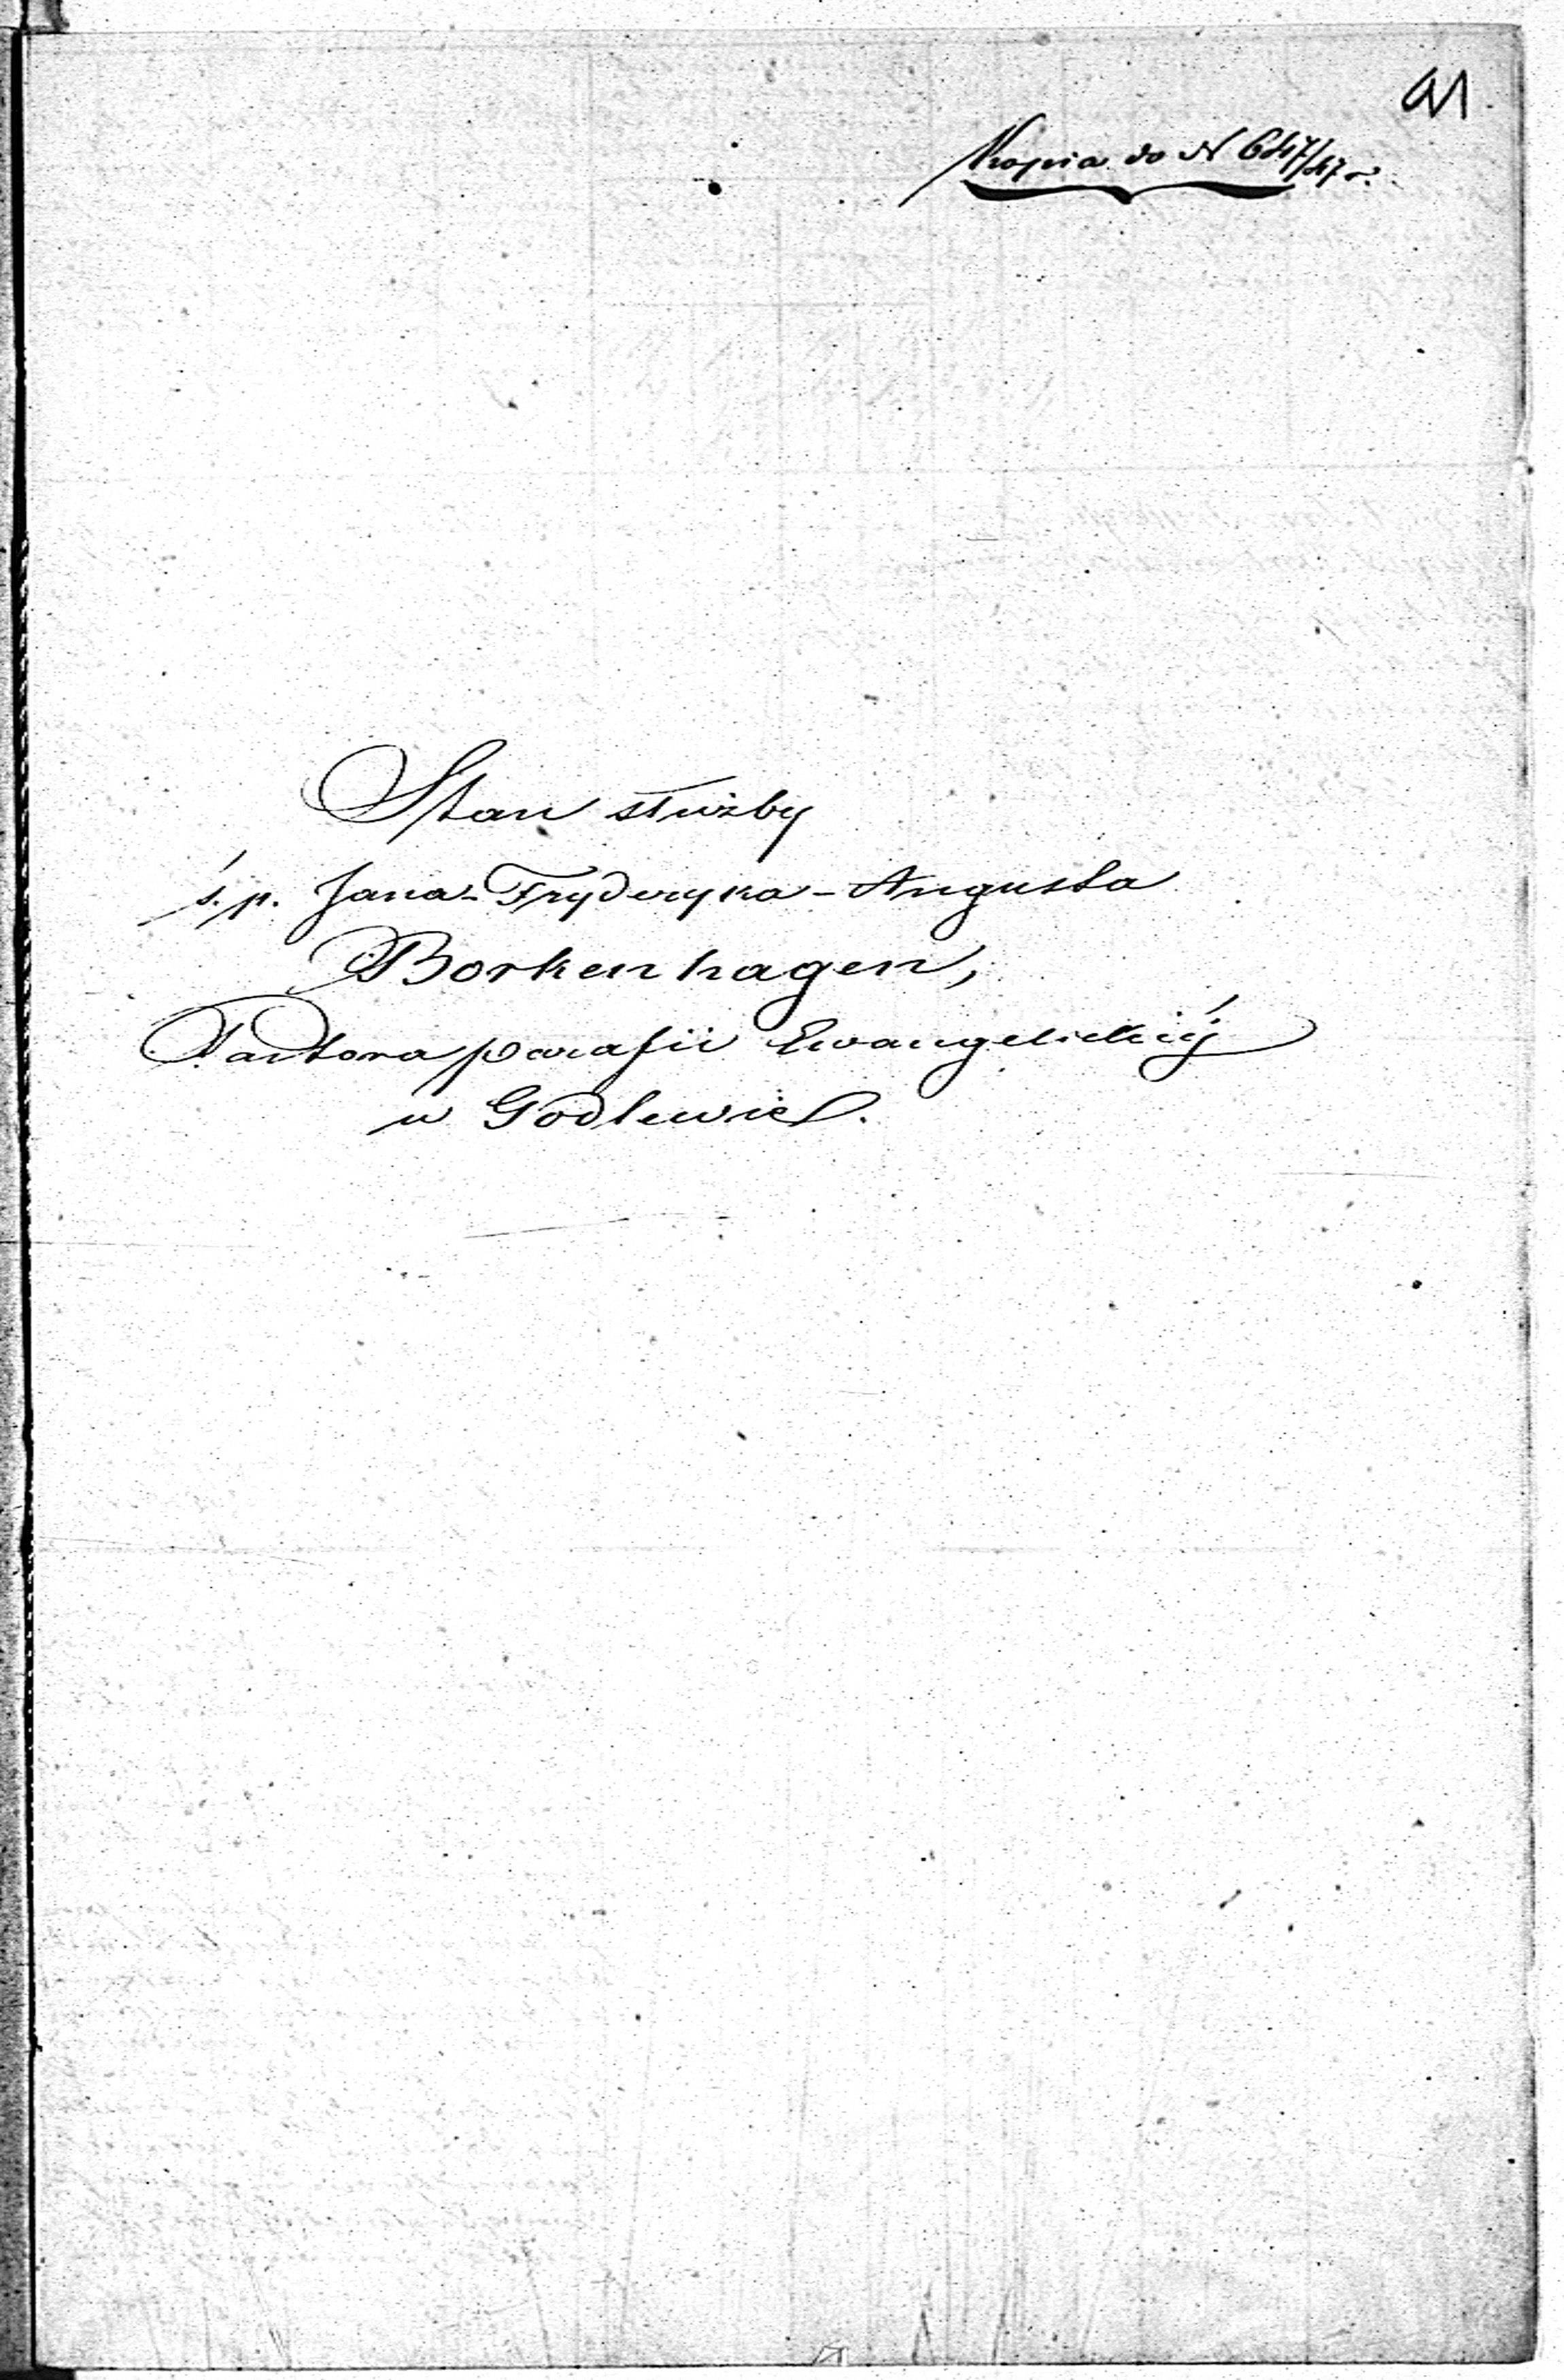 91
Kopia do N 647/47 r.
Stan służby
ś. p. Jana-Fryderyka-Augusta
Borkenhagen,
Pastora parafii Ewangelickiéj
w Godlewie.